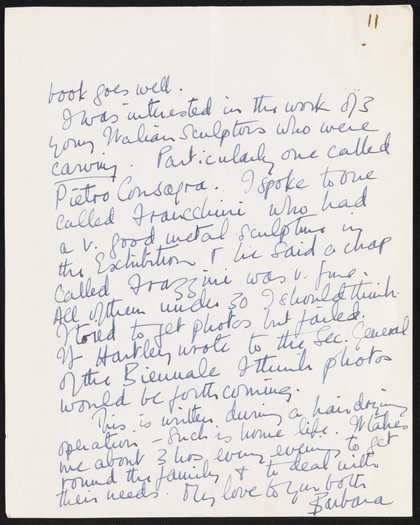 11
book goes well.
I was interested in the work of 3
young Italian sculptors who were
carving. Particularly one called
Pietro Consagra. I spoke to one
called Franchini who had
a v. good metal sculpture in
the Exhibition & he said a chap
called Frazzini was v. fine.
All of them under 30 I should think.
I tried to get photos but failed.
If Hartley wrote to the Sec. General
of the Biennale I think photos
would be forthcoming.
This is written during a hair drying
operation – such is home life. It takes
me about 3 hrs every evening to get
round the family & to deal with
their needs. My love to you both
Barbara